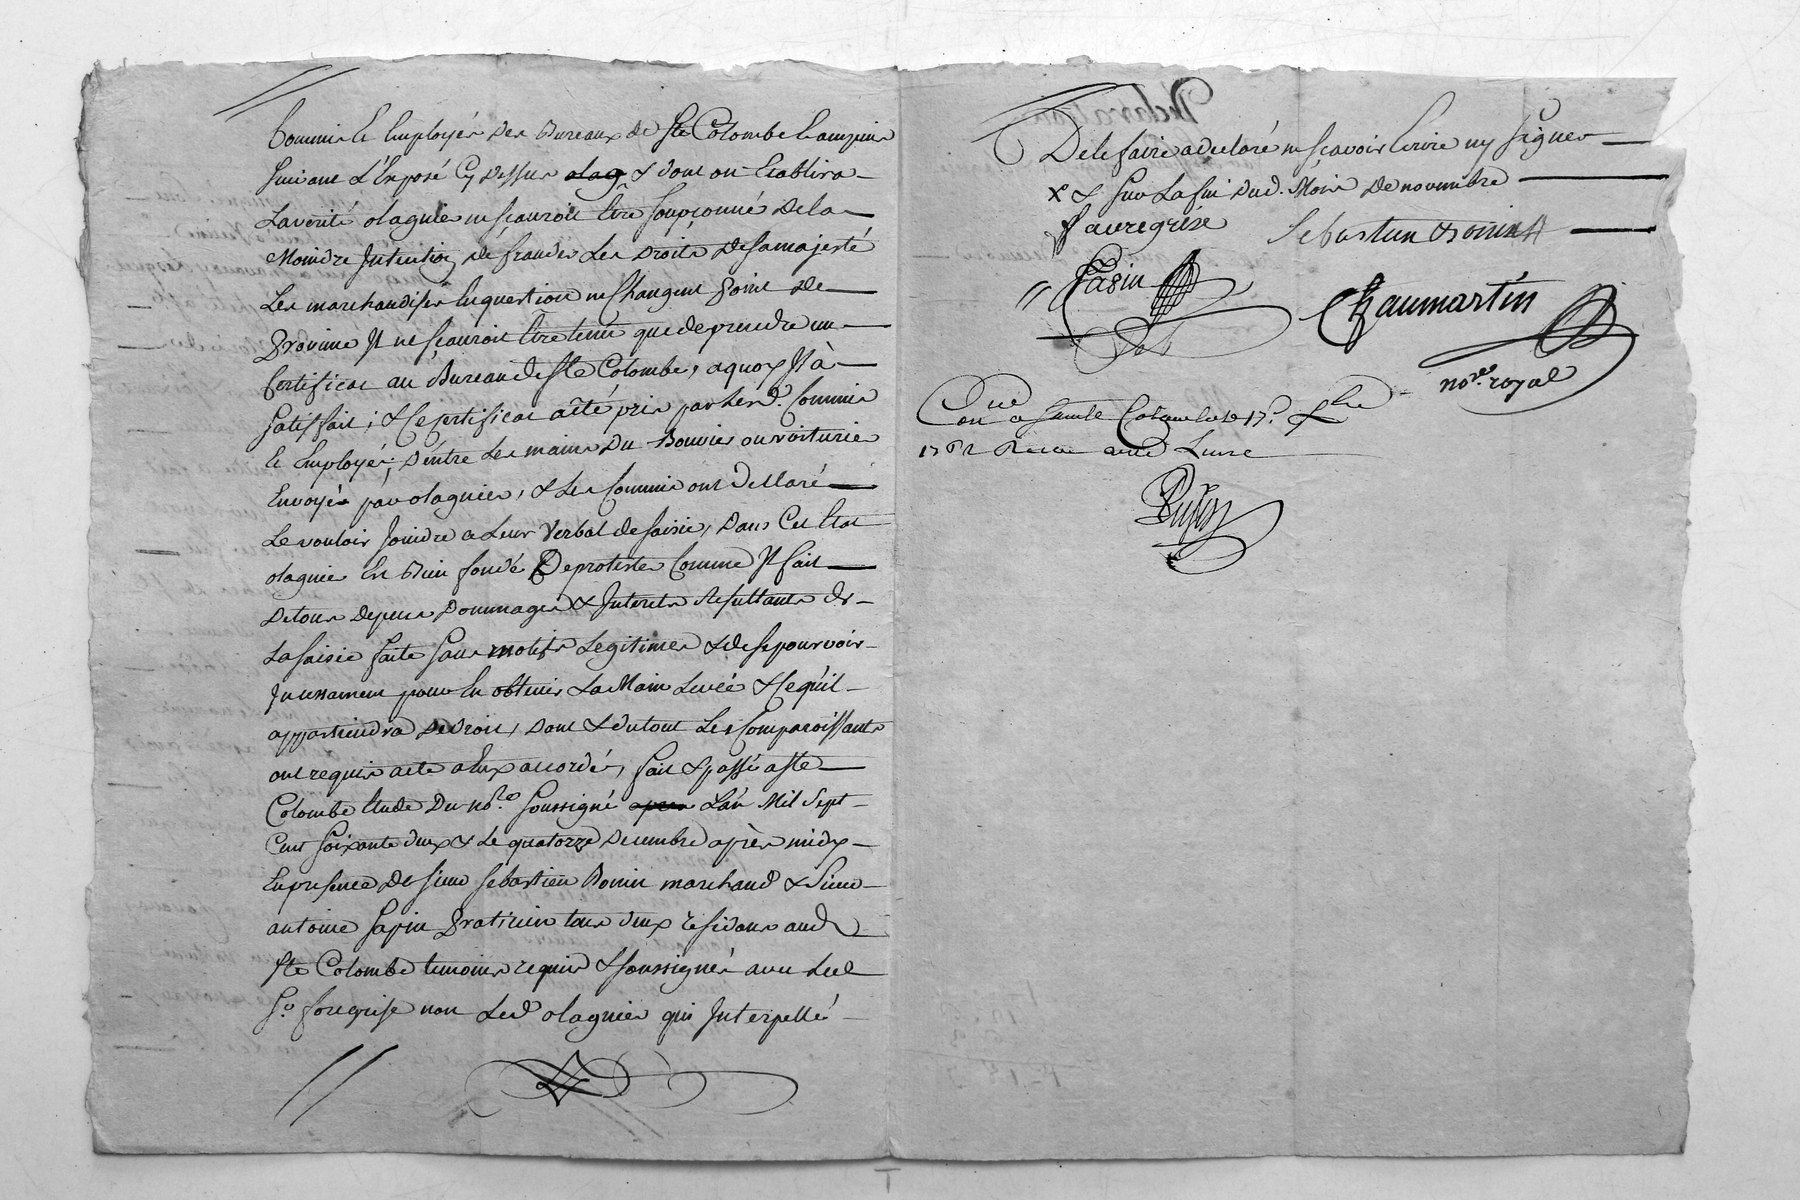 Commis & Employés des Bureaux de Ste Colombe
Suivant L'Exposé Cy dessus olag & dont on Etablira
La verité olagnier ne sçauroit être soupçonné de la
Moindre Intention de frauder Les Droits de sa majesté
Les marchandises En question ne Changent point de
Province Il ne sçauroit être tenu que de prendre un
Certificat au Bureau de Ste Colombe, a quoy Il à
satisfait; & Ce Certificat a été pris par Lesd. Commis
& Employés; d'entre Les mains du Bouvier ou voiturier
Envoyé par olagnier, & Les Commis ont Declaré
Le vouloir Joindre a Leur Verbal de saisie, Dans Cet Etat
olagnier Est Bien fondé De protester Comme Il fait
De tous depens Dommages & Interets Resultants de
La saisie faite sans motifs Legitimes & de se pourvoir
Incessament pour En obtenir La Main Levée & Ce qu'il
appartiendra De Droit, Dont & du tout Les Comparoissants
ont requis acte a Eux accordé, fait & passé a Ste
Colombe Etude Du nore soussigné L'an Mil Sept
Cent soixante deux & Le quatorze Decembre après midy
En presence De sieur Sebastien Bonin marchand & Sieur
antoine Papin Praticien tous deux residans aud
Ste Colombe temoins requis & soussignés avec Led
Sr favregrise non Led olagnier qui Interpellé
De le faire a declaré ne sçavoir Ecrire ny signer
X & sur La fin dud. Mois De novembre
favregrise Sebastien Bonin
Papin Chaumartin
nore. royal
Con à Sainte Colombe le 17. Xbre
1762 Recu